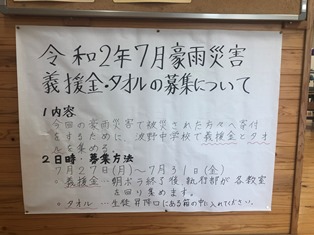 令和2年7月豪雨災害
義援金・タオルの募集について
1 内容
今回の豪雨災害で被災された方々へ寄付
をするために、波野中学校で義援金とタオ
ルを集める。
2 日時・募集方法
7月27日(月)～7月31日(金)
・義援金…朝ボラ終了後、執行部が各教室
を回り集めます。
・タオル…生徒昇降口にある箱の中に入れてください。